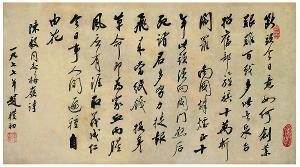 斷頭今日意如何創業
艱難百戰多此去泉臺
招舊部旌旗十萬斬
閻羅 南國烽煙正十
年此頭須向國門懸後
死諸君多努力捷報
飛來當紙錢 投身
革命即為家血雨腥
風應有涯取義成仁
今日事人間遍種自
由花
陳毅同志梅嶺詩
一九七七年 趙樸初